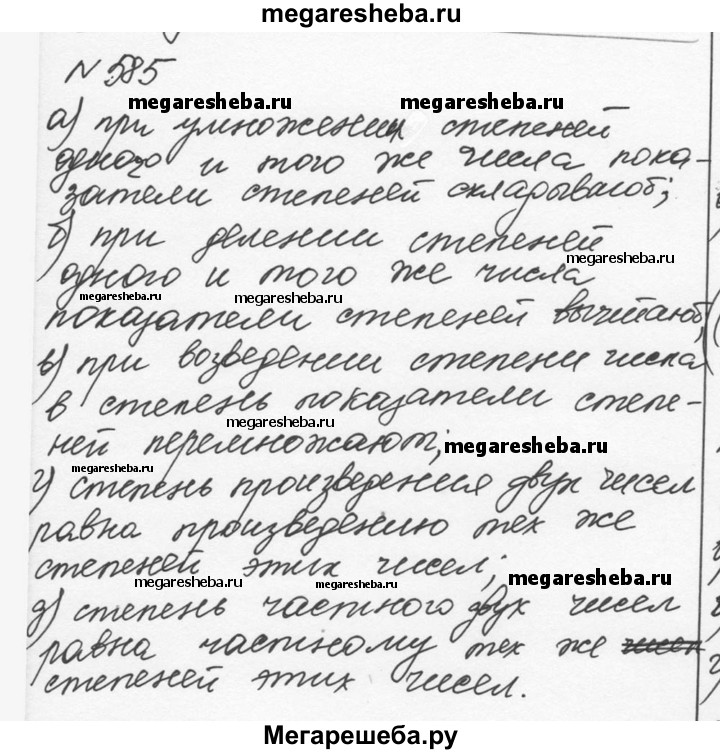 megaresheba.ru
N 585
megaresheba.ru megaresheba.ru
а) при умножении степеней
одного и того же числа пока-
затели степеней складывают;
б) при делении степеней
megaresheba.ru
одного и того же числа
megaresheba.ru megaresheba.ru
показатели степеней вычитают;
в) при возведении степени числа
в степень показатели степе-
megaresheba.ru
ней перемножают; megaresheba.ru
megaresheba.ru
г) степень произведения двух чисел
равна произведению тех же
степеней этих чисел;
megaresheba.ru megaresheba.ru megaresheba.ru
д) степень частного двух чисел
равна частному тех же чисел
степеней этих чисел.
Мегарешеба.ру